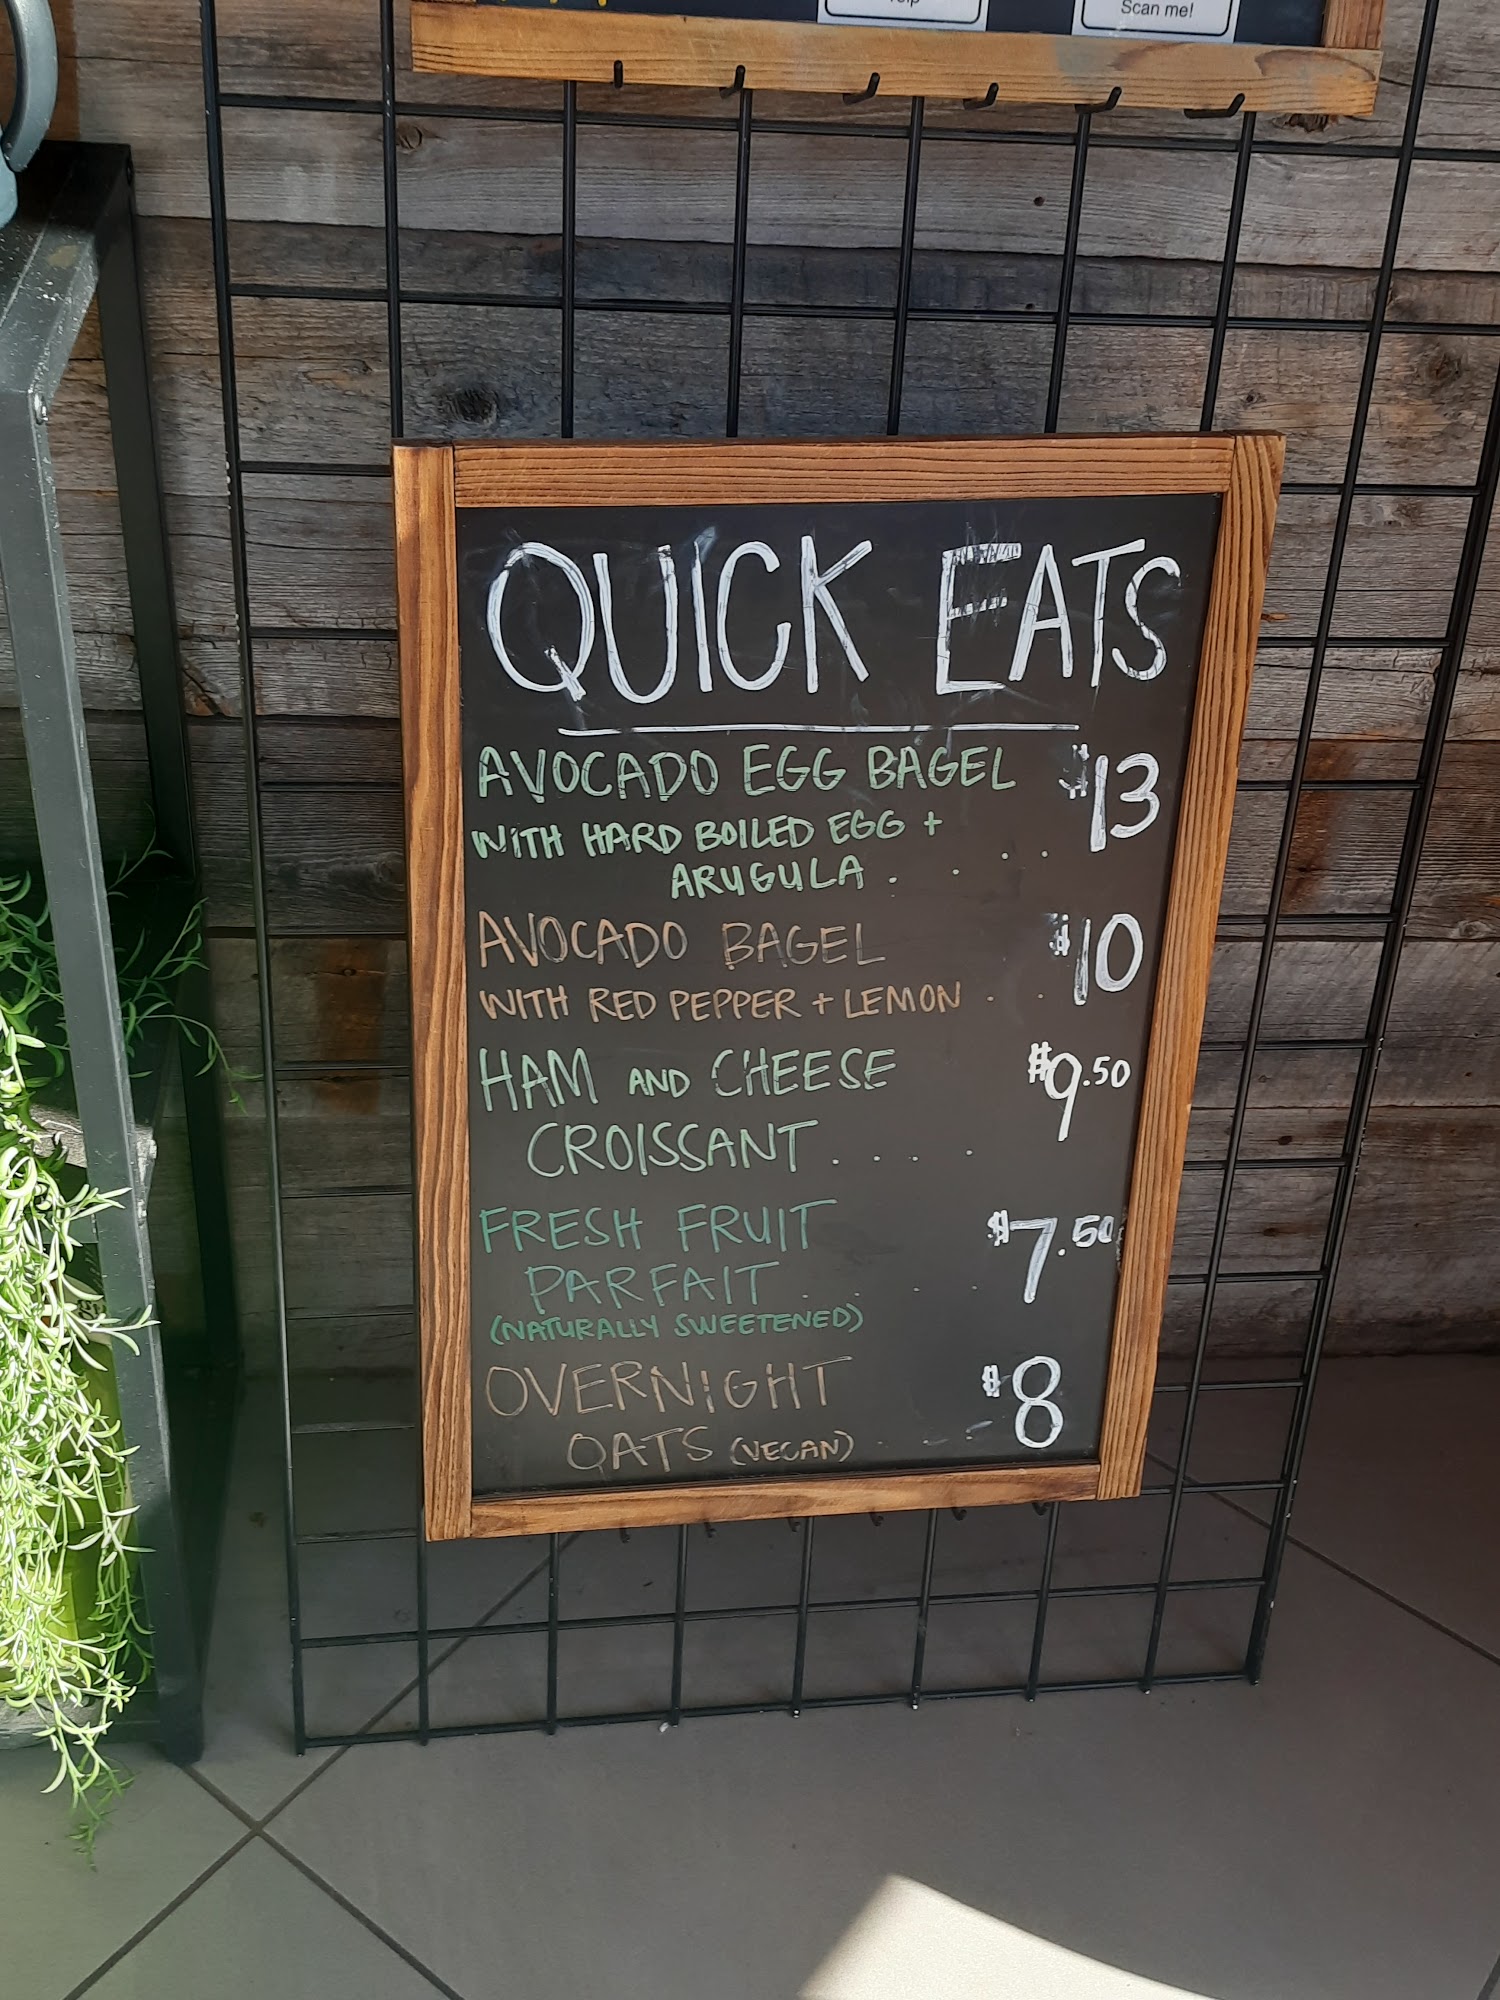 Scan me!
QUICK EATS
AVOCADO EGG BAGEL $13
WITH HARD BOILED EGG +
ARUGULA . . . .
AVOCADO BAGEL $10
WITH RED PEPPER + LEMON . .
HAM AND CHEESE $9.50
CROISSANT . . . .
FRESH FRUIT $7.50
PARFAIT . . . .
(NATURALLY SWEETENED)
OVERNIGHT $8
OATS (VEGAN) . . .